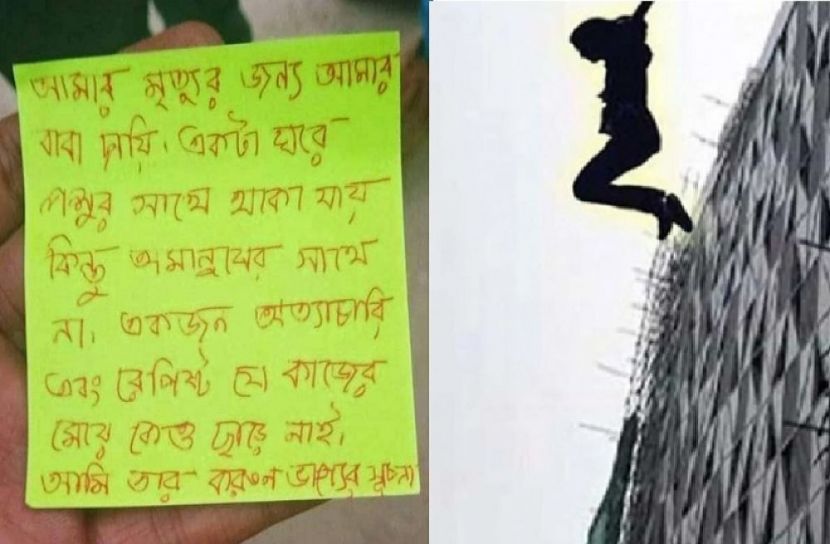 আমার মৃত্যুর জন্য আমার
বাবা দায়ি। একটা ঘরে
পশুর সাথে থাকা যায়
কিন্তু অমানুষের সাথে
না। একজন অত্যাচারি
এবং রেপিষ্ট যে কাজের
মেয়ে কেও ছাড়ে নাই।
আমি তার করুণ ভাগ্যের সূচনা